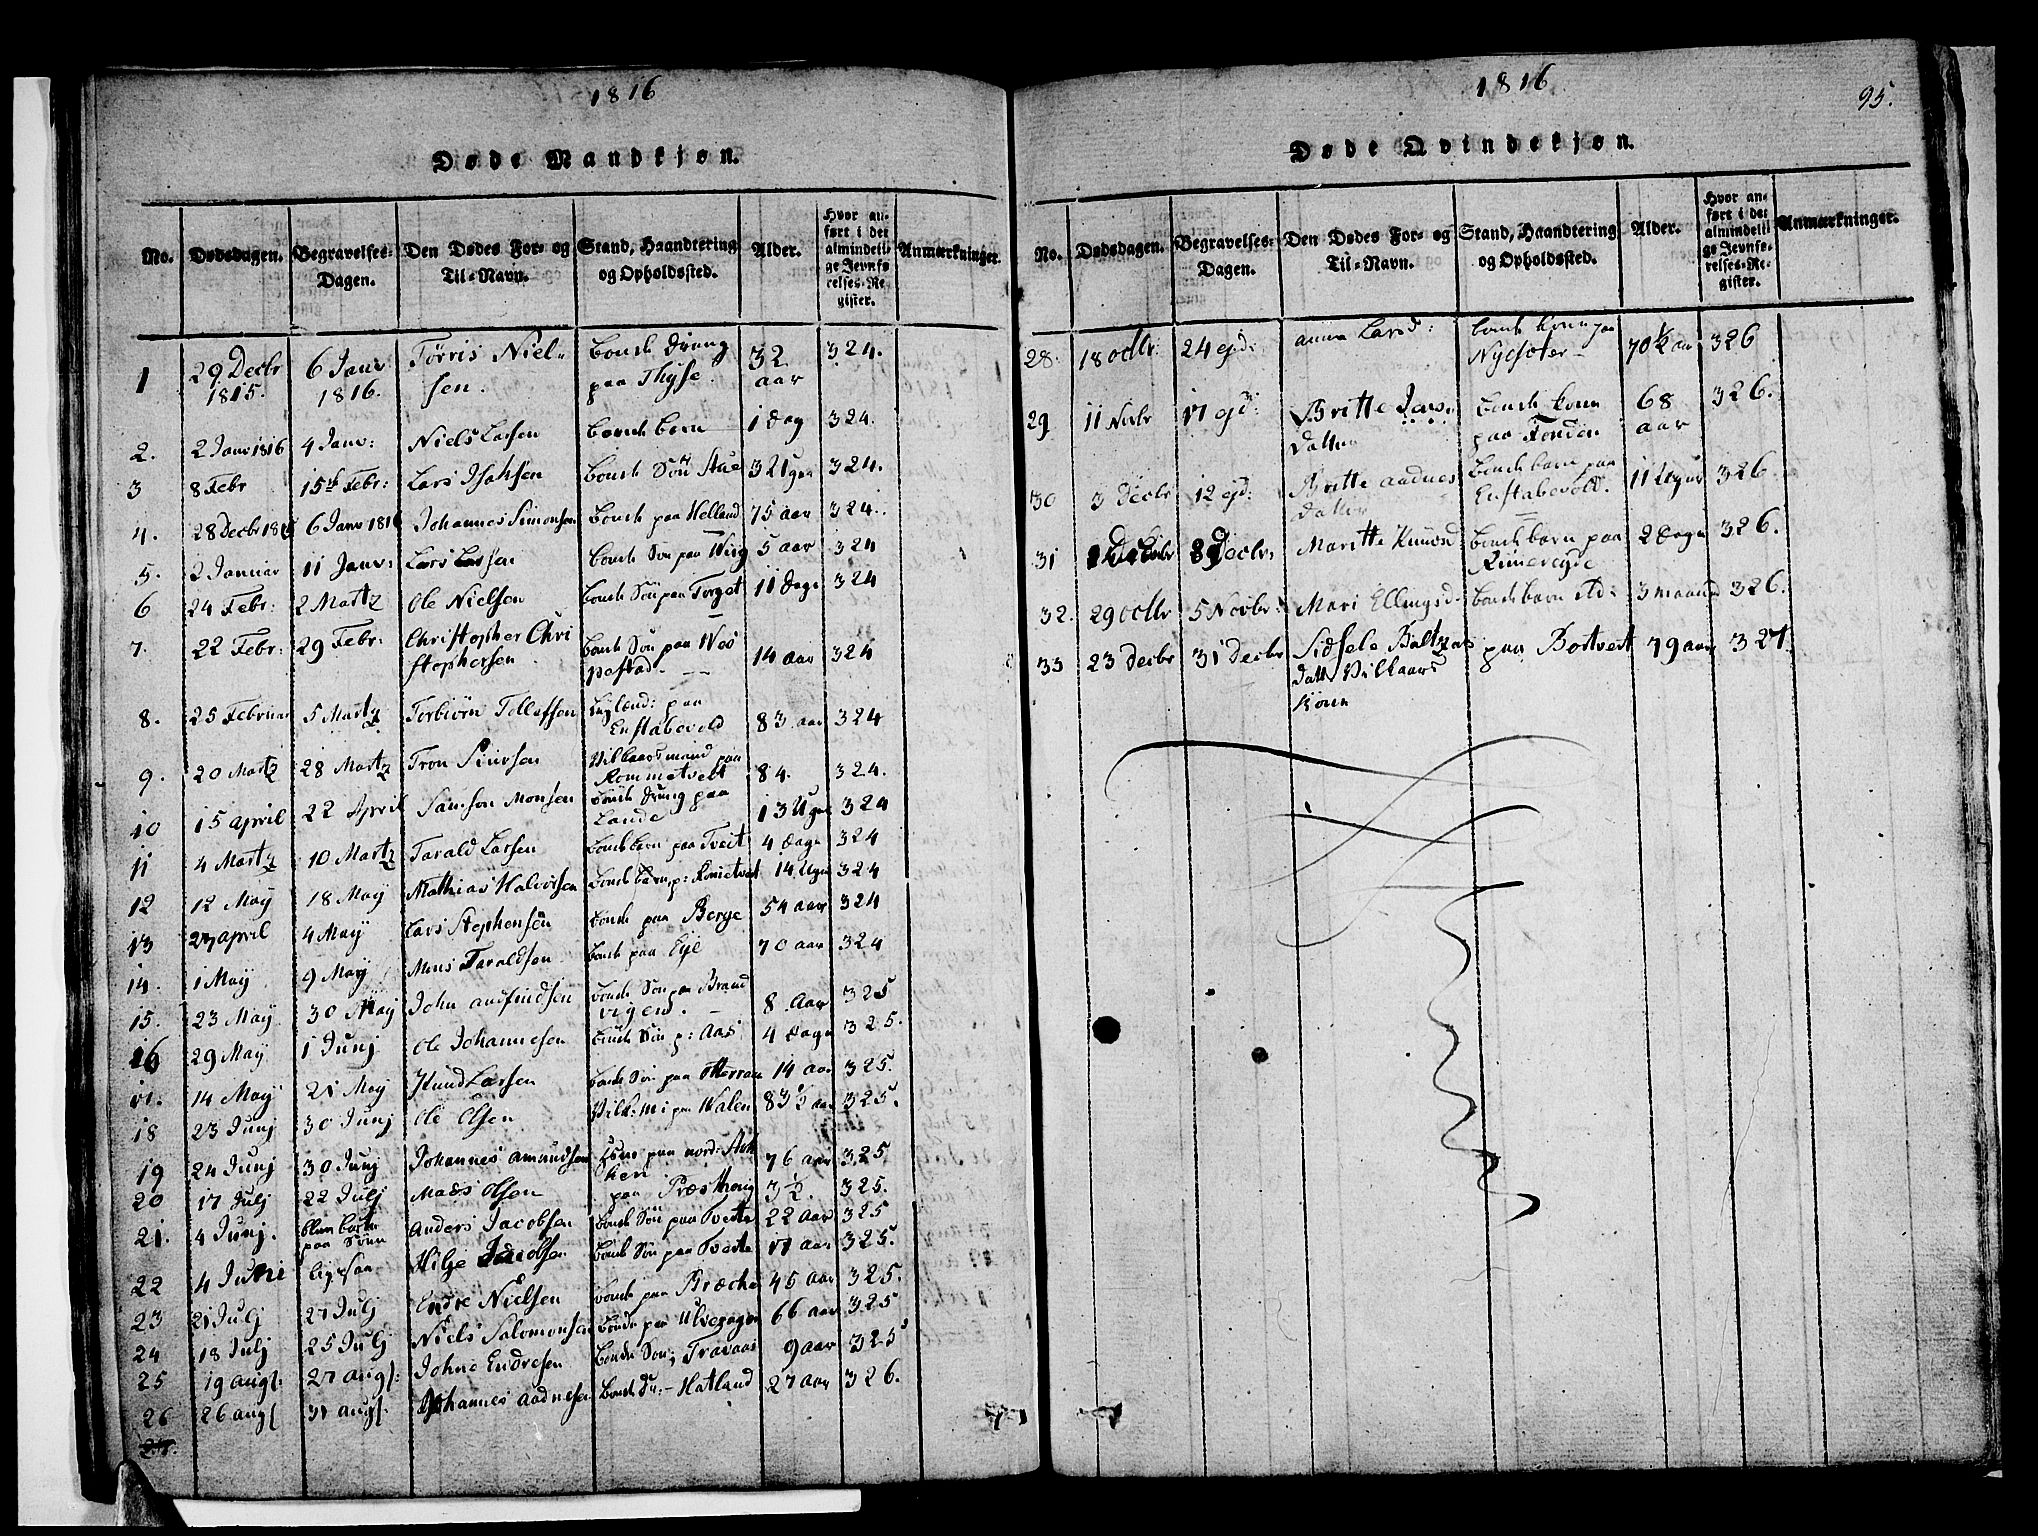 1816
Døde Mandkjøn.
No. Dødsdagen. Begravelses-Dagen. Den Dødes For- og Til-Navn. Stand, Haandtering og Opholdssted. Alder. Hvor anført i det almindelige Jevnførelses-Register. Anmærkninger.
1 29 Decbr 1815. 6 Janv 1816. Tørris Nielsen. bonde dreng paa Thyse. 32 aar 324.
2. 2 Janv 1816 4 Janv: Niels Larsen bonde barn 1 dag 324.
3 8 Febr 15de Febr: Lars Isaksen bonde Søn 3 Uger 324.
4. 28 Decbr 1815 6 Janv 1816 Johannes Simonsen bonde paa Helland 75 aar 324.
5. 2 Januar 11 Janv: Lars Larsen bonde Søn paa 5 aar 324
6 24 Febr: 2 Martz Ole Nielsen bonde Søn paa Torget 11 dage 324
7. 22 Febr: 29 Febr: Christopher Christophersen bonde Søn paa 14 aar 324
8. 25 Februar 5 Martz Torbiørn Tollefsen paa Enstabovold 83 aar 324
9. 20 Martz 28 Martz Tron Siursen Vilkaarsmand paa Rommetvedt 84. 324.
10 15 april 22 April Samson Monsen bonde dreng paa Lande 13 Uger 324
11 4 Martz 10 Martz Tarald Larsen bonde barn paa Tveit 4 dage 324
12 12 May 18 May Mathias Halvorsen bonde barn p: 14 Uger 324
13 27 april 4 May Lars Stephensen bonde paa Berge 54 aar 324
14. 1 May 9 May Mons Taraldsen bonde paa Eye 70 aar 324
15. 23 May 30 May John andfindsen bonde Søn paa Brandvigen. 8 Aar 325
16 29 May 1 Junj Ole Johannesen bonde Søn p: Aas 4 dage 325.
17. 14 May 21 May Knud Larsen bonde Søn paa 14 aar 325.
18 23 Junj 30 Junj Ole Olsen Vilk: m: paa Walen 83½ aar 325.
19 24 Junj 30 Junj Johannes amundsen paa nord: 76 aar 325
20 17 Julj 22 Julj Mads Olsen paa 3½. 325.
21. 4 Junj. blev borte paa Søen Anders Jacobsen bonde Søn paa Tveite 22 aar 325
22 4 Juni ligesaa Hilje Jacobsen bonde Søn paa Tveite 17 aar 325.
23 21 Julj 27 Julj Endre Nielsen bonde paa Bræcke 45 aar 325.
24 18 Julj 25 Julj Niels Salomonsen bonde paa 66 aar 325
25 19 augs: 27 augs: Johne Endresen bonde Søn: Travaas 9 aar 325
26 26 augs 31 augs. Johannes aadnesen bonde Dr: - Hatland 27 aar 326.
27.
1816 95.
Døde Qvindekjøn.
No. Dødsdagen. Begravelses-Dagen. Den Dødes For- og Til-Navn. Stand, Haandtering og Opholdssted. Alder. Hvor anført i det almindelige Jevnførelses-Register. Anmærkninger.
28. 18 octbr. 24 ejd: anna Larsd: bonde kone paa Nysæter 70½ aar 326
29 11 Novbr 17 ejd: Britte datter bonde kone paa 68 aar 326.
30 3 Decbr 12 ejd: Britte aadnes datter bonde barn paa Enstabovold. 11 Uger 326.
31 Decbr: Maritte Knudsd bonde barn paa Rimereyde 2 dage 326.
32. 29 octbr 5 Novbr: Mari Ellingsd bonde barn 3 maaned 326.
33 23 decbr 31 decbr Sidsele Baltzers datt: Vilkaars kone paa Bostvert 79 aar 327.